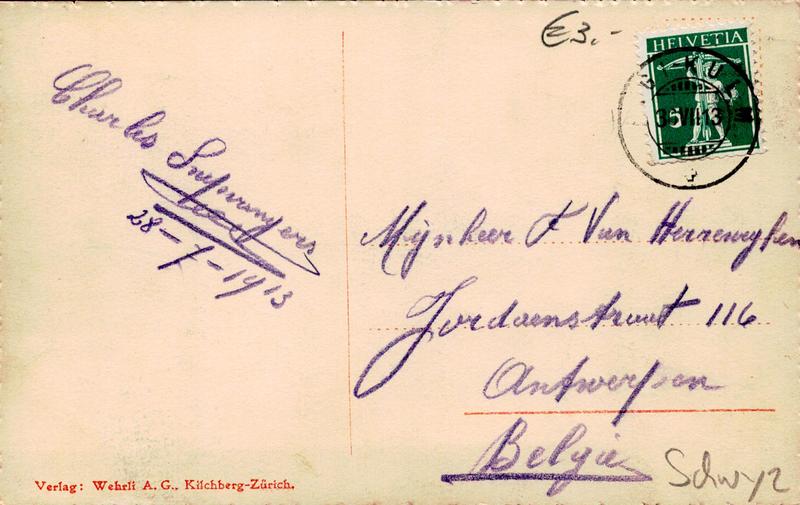 €3.-
HELVETIA
5
VII 13
Charles
28-7-1913
Mijnheer F Van Herreweghen
Jordaenstraat 116
Antwerpen
België
Schwyz
Verlag: Wehrli A. G., Kilchberg-Zürich.